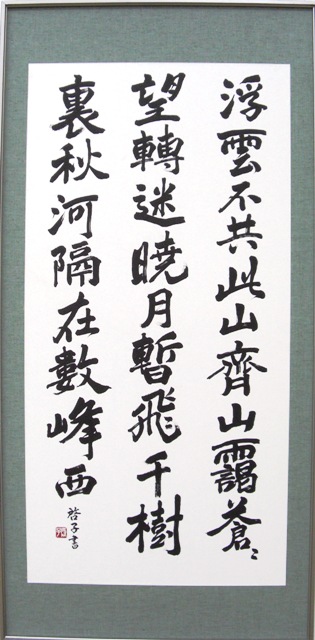 浮雲不共此山齊山靄蒼〻
望轉迷暁月暫飛千樹
裏秋河隔在數峰西
啓子書